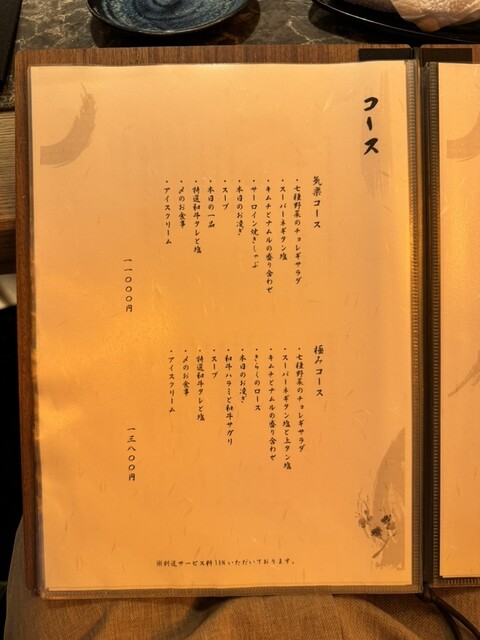 コース
気楽コース
・七種野菜のチョレギサラダ
・スーパーネギタン塩
・キムチとナムルの盛り合わせ
・サーロイン焼きしゃぶ
・本日のお凌ぎ
・スープ
・本日の一品
・特選和牛タレと塩
・〆のお食事
・アイスクリーム
一一〇〇〇円
極みコース
・七種野菜のチョレギサラダ
・スーパーネギタン塩と上タン塩
・キムチとナムルの盛り合わせ
・きらしのロース
・本日のお凌ぎ
・和牛ハラミと和牛サガリ
・スープ
・特選和牛タレと塩
・〆のお食事
・アイスクリーム
一三八〇〇円
※別途サービス料11%いただいております。